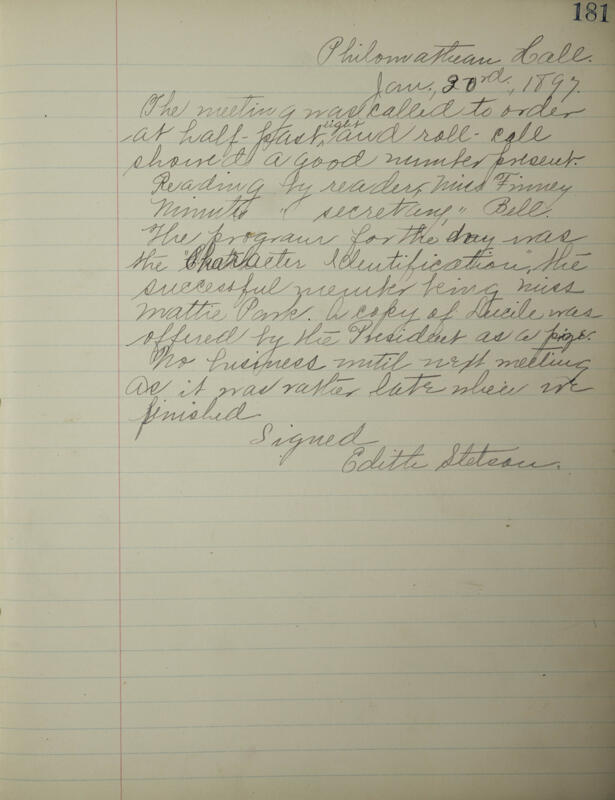 181
Philomathean Hall.
Jan., 30rd., 1897.
The meeting was called to order
at half-past eight and roll-call
showed a good number present.
Reading by reader, Miss Finney
Minuts " secretary, " Bell.
The program for the day was
the "Character Identification", the
successful member being Miss
Mattie Park. A copy of Lucile was
offered by the President as a prize.
No business until next meeting
as it was rather late when we
finished
Signed
Edith Stetson.